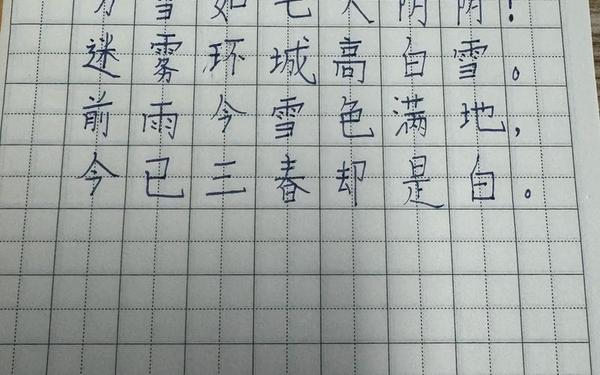 如 天阴阴!
迷雾环城高白雪。
前雨今雪色满地,
今已三春却是白。